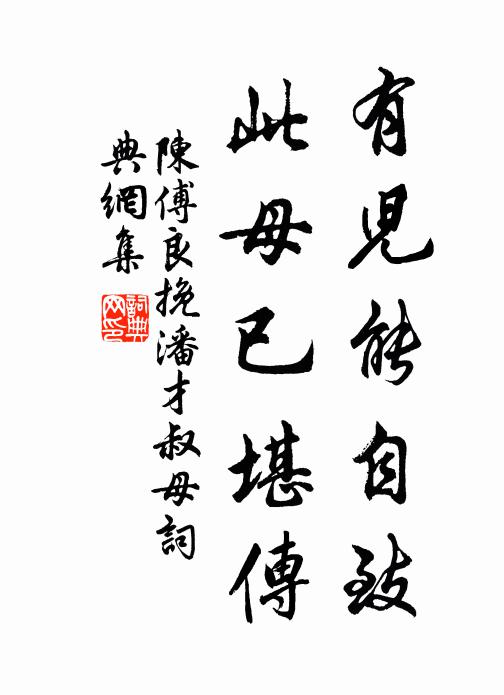 有児能自致
此母已堪傳
陳傅良挽潘才叔母詞
典網集
詞典網印